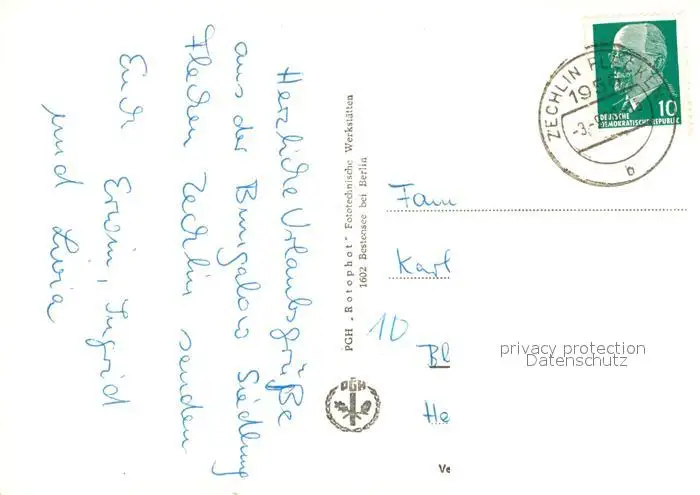 Herzliche Urlaubsgrüße
aus der Bungalow Siedlung
Flecken Zechlin senden
Euch Erwin, Ingrid
und Livia
PGH „Rotophot“ Fototechnische Werkstätten
1602 Bestensee bei Berlin
PGH
ZECHLIN FLECKEN
195
-3.
b
10
DEUTSCHE
DEMOKRATISCHE REPUBLIK
Fam
Karl
10
Bl
He
Ve
privacy protection
Datenschutz